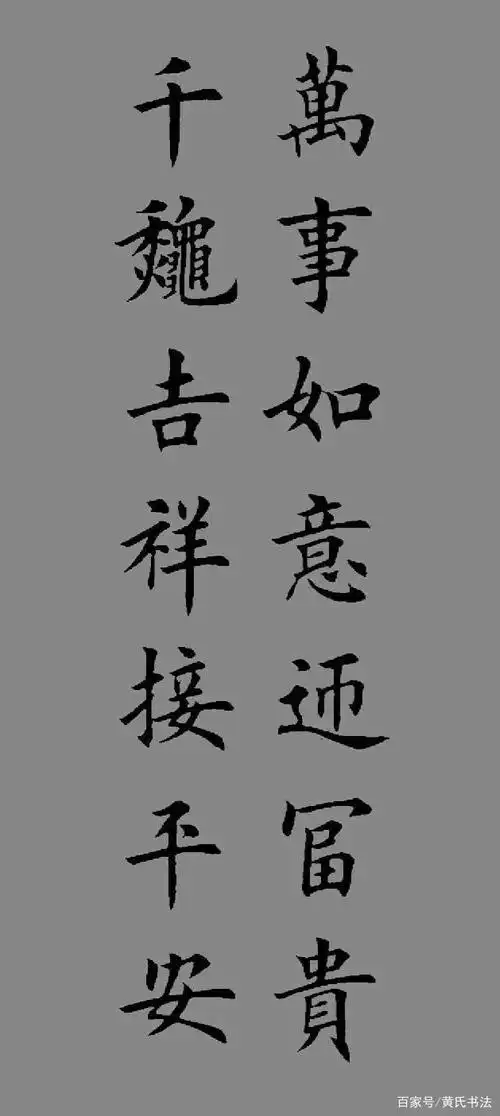 萬事如意迊冨貴
千龝吉祥接平安
百家号/黄氏书法